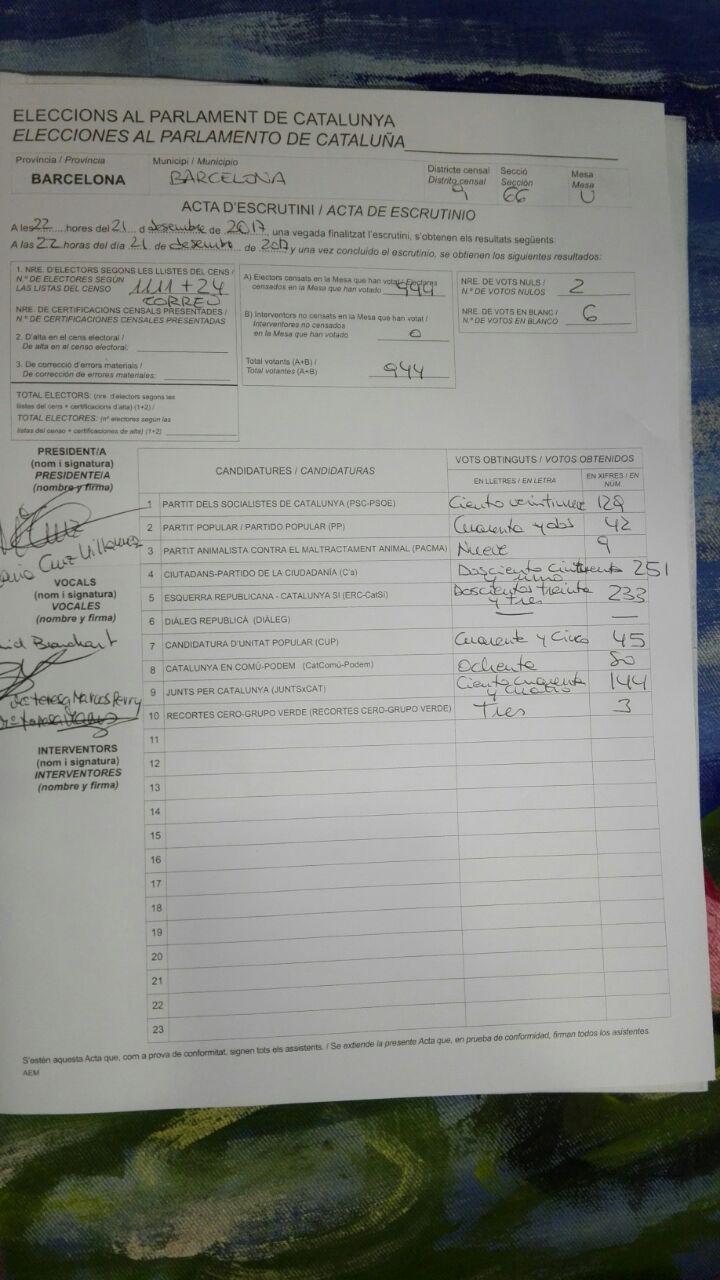 ELECCIONS AL PARLAMENT DE CATALUNYA
ELECCIONES AL PARLAMENTO DE CATALUÑA
Província / Provincia
BARCELONA
Municipi / Municipio
BARCELONA
Districte censal
Distrito censal
9
Secció
Sección
66
Mesa
Mesa
U
ACTA D'ESCRUTINI / ACTA DE ESCRUTINIO
A les 22 hores del 21 d desembre de 2017, una vegada finalitzat l'escrutini, s'obtenen els resultats següents:
A las 22 horas del día 21 de de 2017 y una vez concluido el escrutinio, se obtienen los siguientes resultados:
1. NRE. D'ELECTORS SEGONS LES LLISTES DEL CENS /
N.º DE ELECTORES SEGÚN
LAS LISTAS DEL CENSO 1111 + 24
CORREU
NRE. DE CERTIFICACIONS CENSALS PRESENTADES /
N.º DE CERTIFICACIONES CENSALES PRESENTADAS
2. D'alta en el cens electoral /
De alta en el censo electoral:
3. De correcció d'errors materials /
De corrección de errores materiales:
TOTAL ELECTORS: (nre. d'electors segons les
llistes del cens + certificacions d'alta) (1+2) /
TOTAL ELECTORES: (nº electores según las
listas del censo + certificaciones de alta) (1+2)
A) Electors censats en la Mesa que han votat / Electores
censados en la Mesa que han votado 944
B) Interventors no censats en la Mesa que han votat /
Interventores no censados
en la Mesa que han votado 0
Total votants (A+B) /
Total votantes (A+B) 944
NRE. DE VOTS NULS /
N.º DE VOTOS NULOS 2
NRE. DE VOTS EN BLANC /
N.º DE VOTOS EN BLANCO 6
PRESIDENT/A
(nom i signatura)
PRESIDENTE/A
(nombre y firma)
Cruz
VOCALS
(nom i signatura)
VOCALES
(nombre y firma)
Teresa Marcos
INTERVENTORS
(nom i signatura)
INTERVENTORES
(nombre y firma)
CANDIDATURES / CANDIDATURAS
VOTS OBTINGUTS / VOTOS OBTENIDOS
EN LLETRES / EN LETRA
EN XIFRES / EN NÚM.
1 PARTIT DELS SOCIALISTES DE CATALUNYA (PSC-PSOE) Ciento veintinueve 129
2 PARTIT POPULAR / PARTIDO POPULAR (PP) Cuarenta y dos 42
3 PARTIT ANIMALISTA CONTRA EL MALTRACTAMENT ANIMAL (PACMA) Nueve 9
4 CIUTADANS-PARTIDO DE LA CIUDADANÍA (C's) Doscientos cincuenta y uno 251
5 ESQUERRA REPUBLICANA - CATALUNYA SÍ (ERC-CatSí) Doscientos treinta y tres 233
6 DIÀLEG REPUBLICÀ (DIÀLEG) — —
7 CANDIDATURA D'UNITAT POPULAR (CUP) Cuarenta y cinco 45
8 CATALUNYA EN COMÚ-PODEM (CatComú-Podem) Ochenta 80
9 JUNTS PER CATALUNYA (JUNTSxCAT) Ciento cuarenta y cuatro 144
10 RECORTES CERO-GRUPO VERDE (RECORTES CERO-GRUPO VERDE) Tres 3
11
12
13
14
15
16
17
18
19
20
21
22
23
S'estén aquesta Acta que, com a prova de conformitat, signen tots els assistents. / Se extiende la presente Acta que, en prueba de conformidad, firman todos los asistentes.
AEM